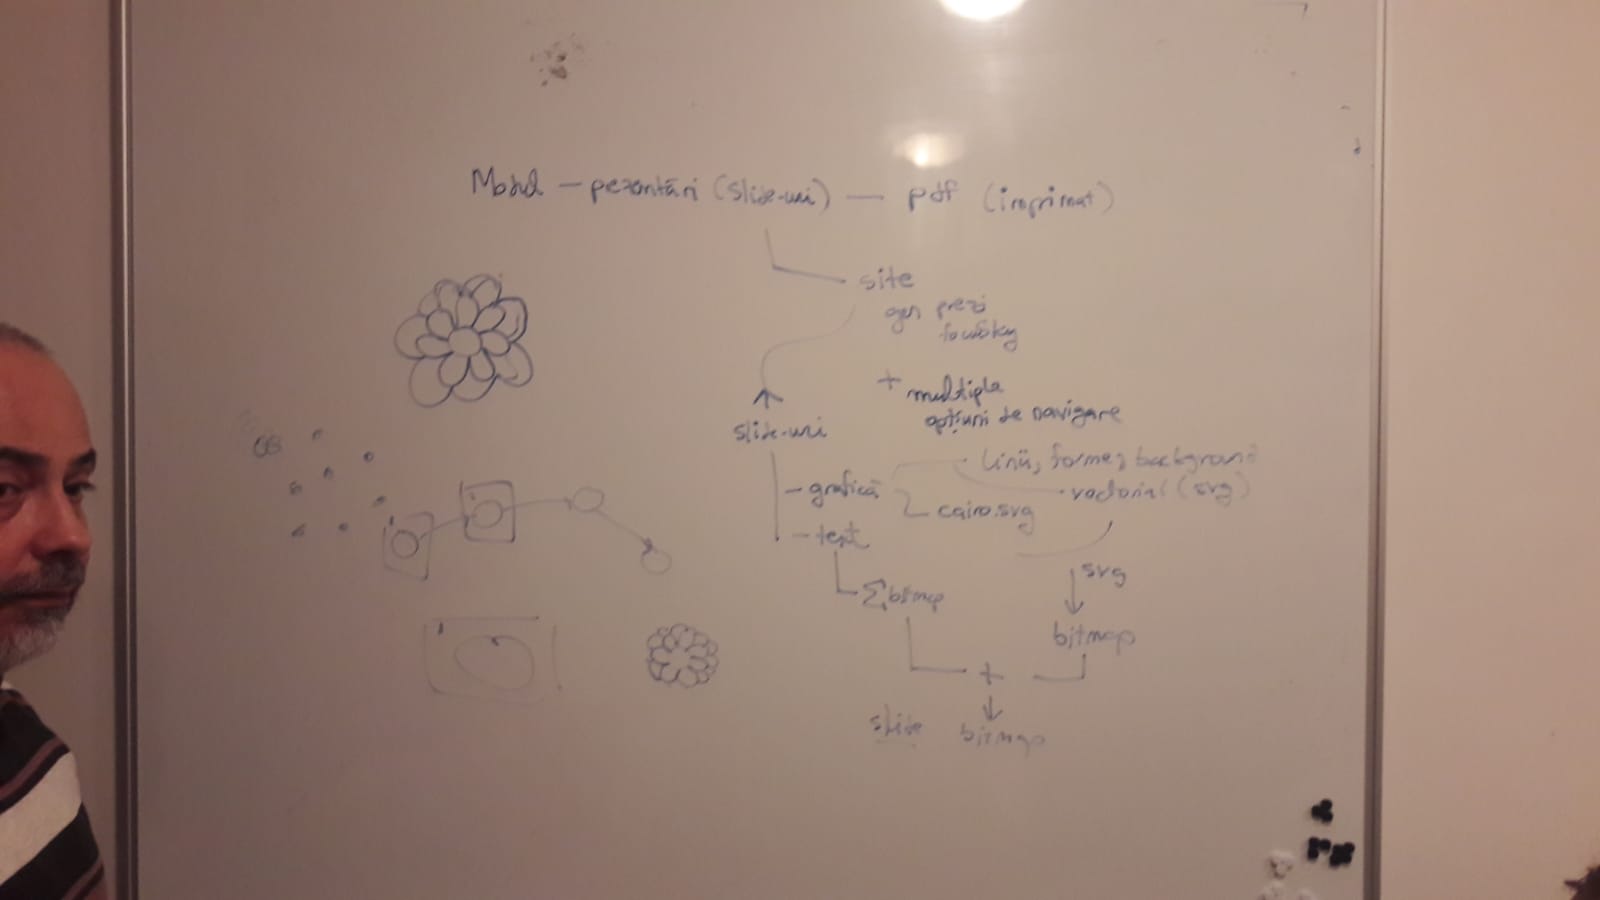 Modul — pezentări (slide-uri) — pdf (imprimat)
site
gen prezi
+ multiple
opțiuni de navigare
slide-uri
- grafică
linii, forme, background
vectorial (svg)
cairo.svg
- text
Σ bitmap
svg
bitmap
+
slide bitmap